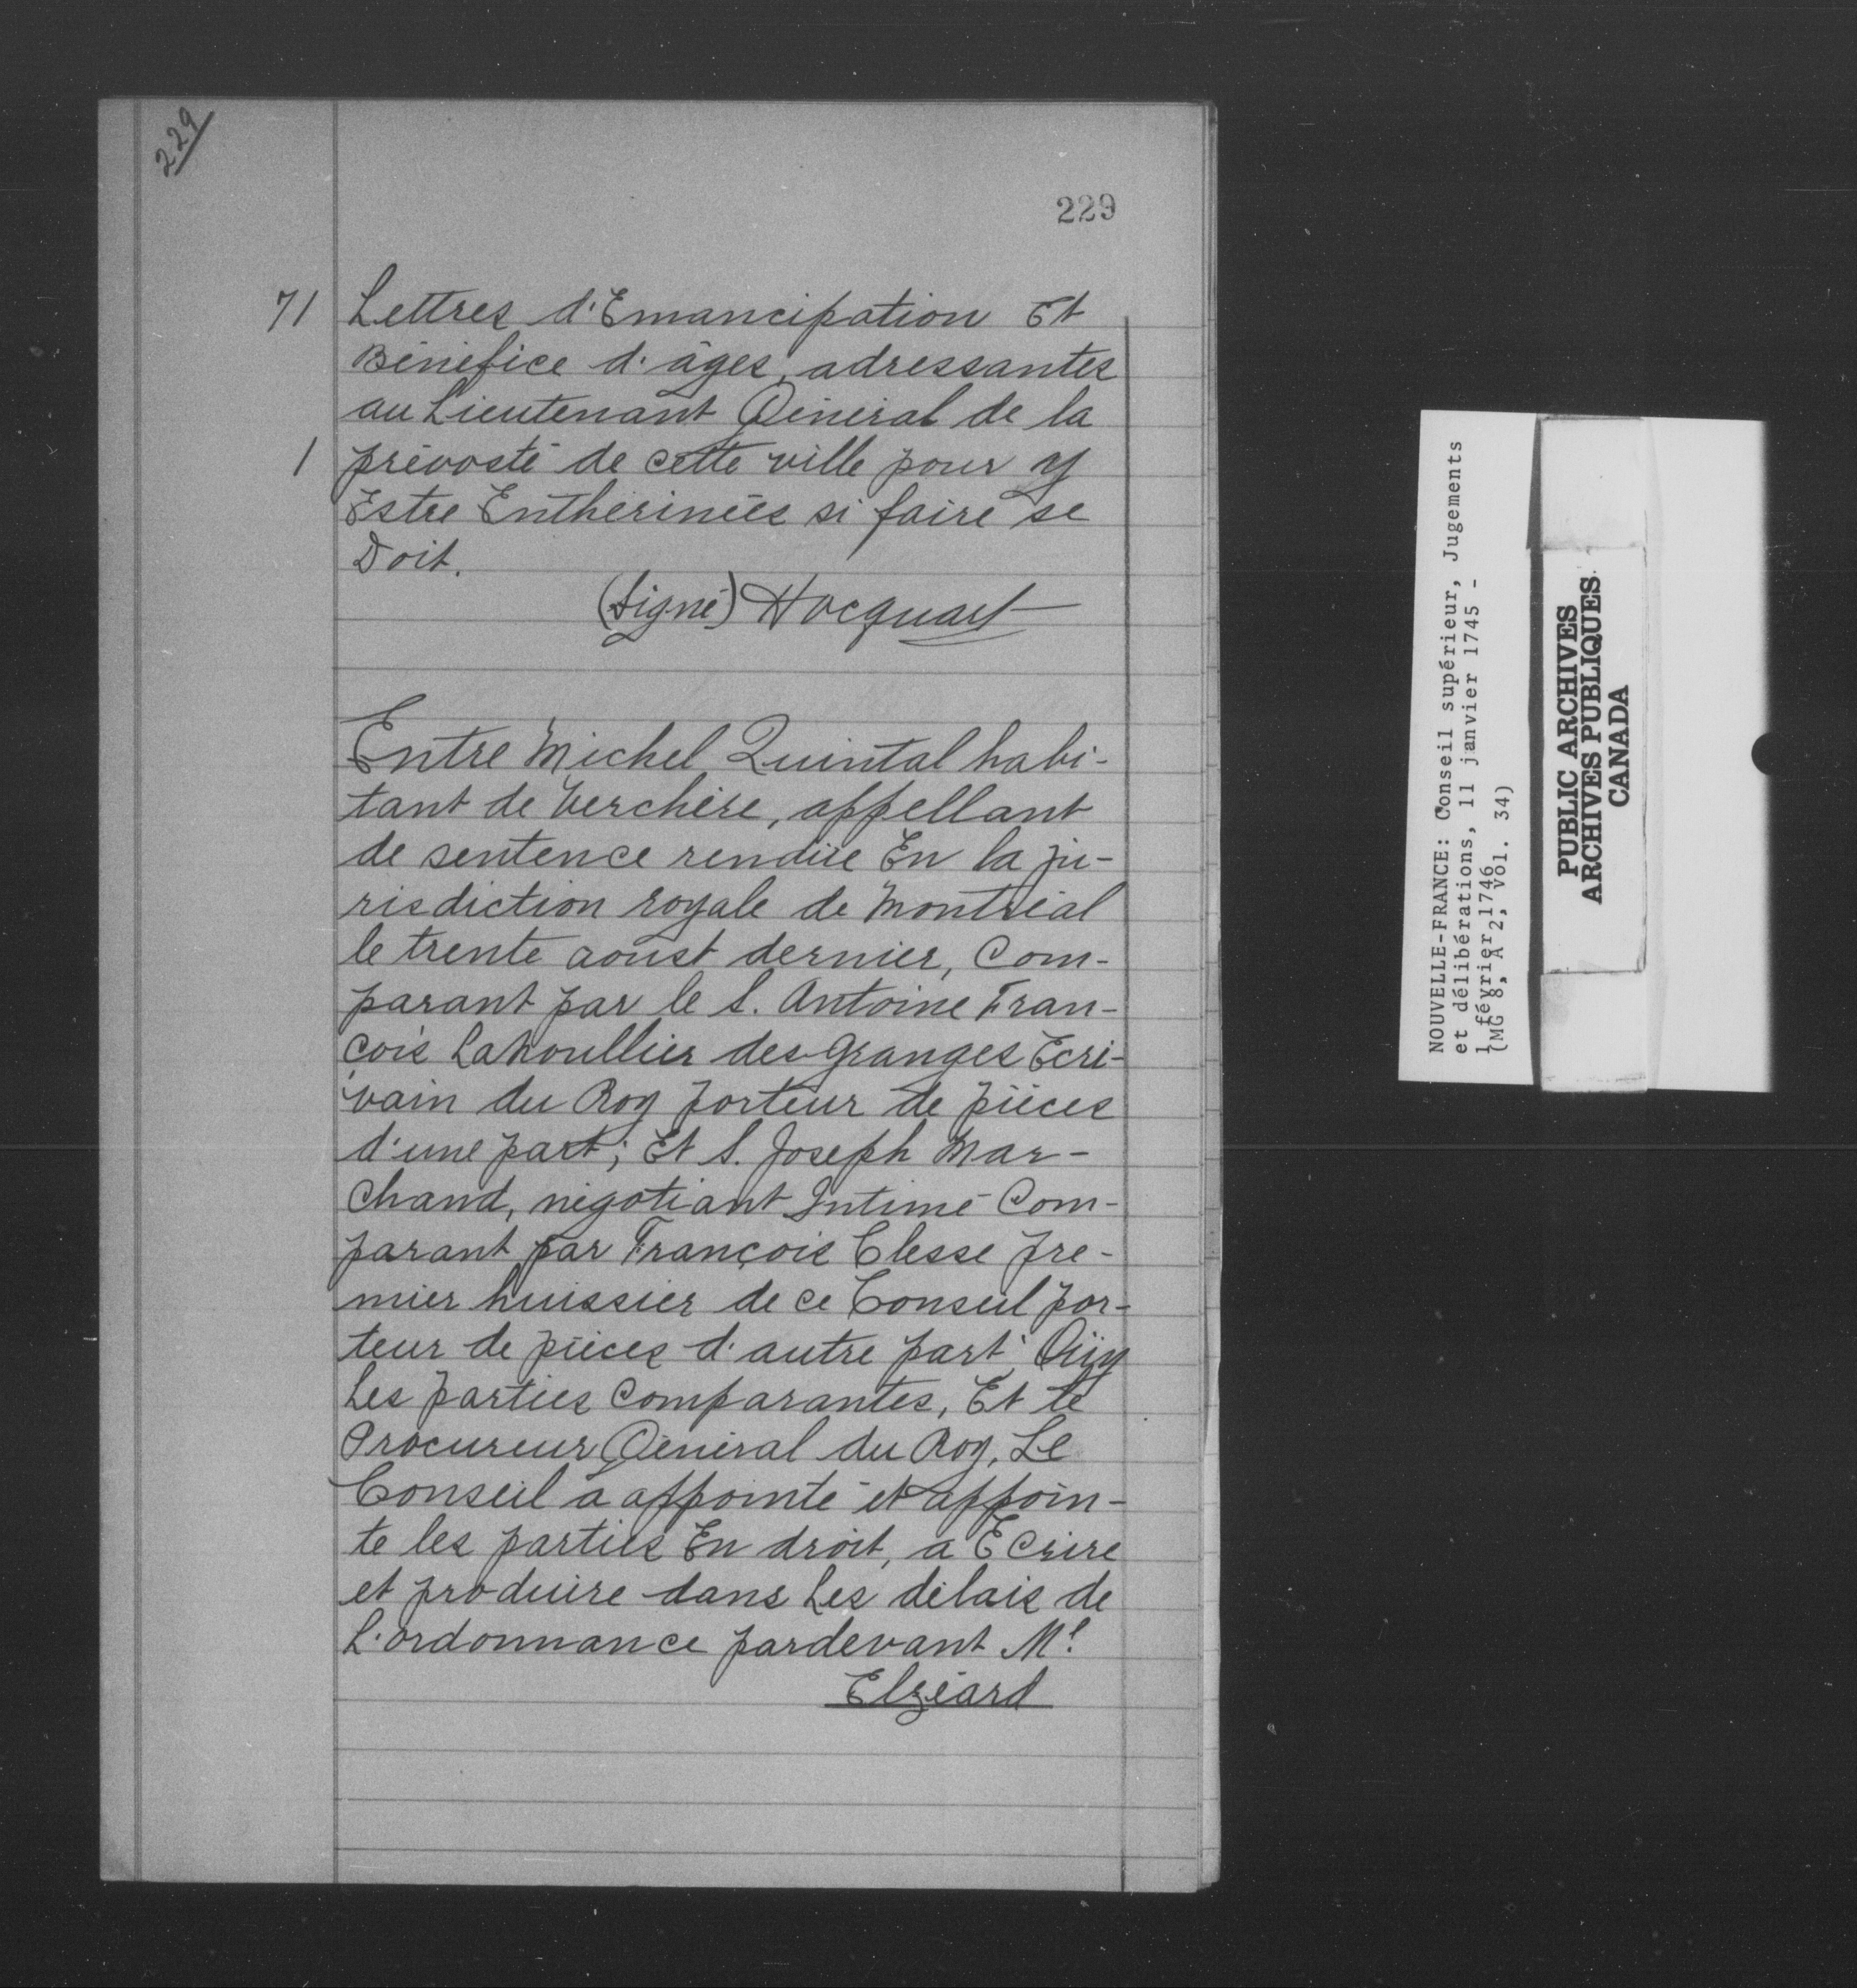 229
229
71 Lettres d'Emancipation Et
Bénéfice d'âges, adressantes
au Lieutenant Général de la
1 prévosté de cette ville pour y
Estre Enthérinées si faire se
Doit.
(Signé) Hocquart
Entre Michel Quintal habi-
tant de Verchère, appellant
de sentence rendüe En la ju-
risdiction royale de Montréal
le trente aoust dernier, Com-
parant par le S. Antoine Fran-
çois Lanoullier des Granges Ecri-
vain du Roy porteur de pièces
d'une part; Et S. Joseph Mar-
chand, négotiant Intimé Com-
parant par François Clesse pre-
mier huissier de ce Conseil por-
teur de pièces d'autre part; Oüy
Les parties comparantes, Et le
Procureur Général du Roy, Le
Conseil a appointé et appoin-
te les parties En droit, a Ecrire
et produire dans Les délais de
L'ordonnance pardevant Me
Elzéard
NOUVELLE-FRANCE: Conseil supérieur, Jugements
et délibérations, 11 janvier 1745 -
1 février 1746
(MG 8, A 2, vol. 34)
PUBLIC ARCHIVES
ARCHIVES PUBLIQUES
CANADA